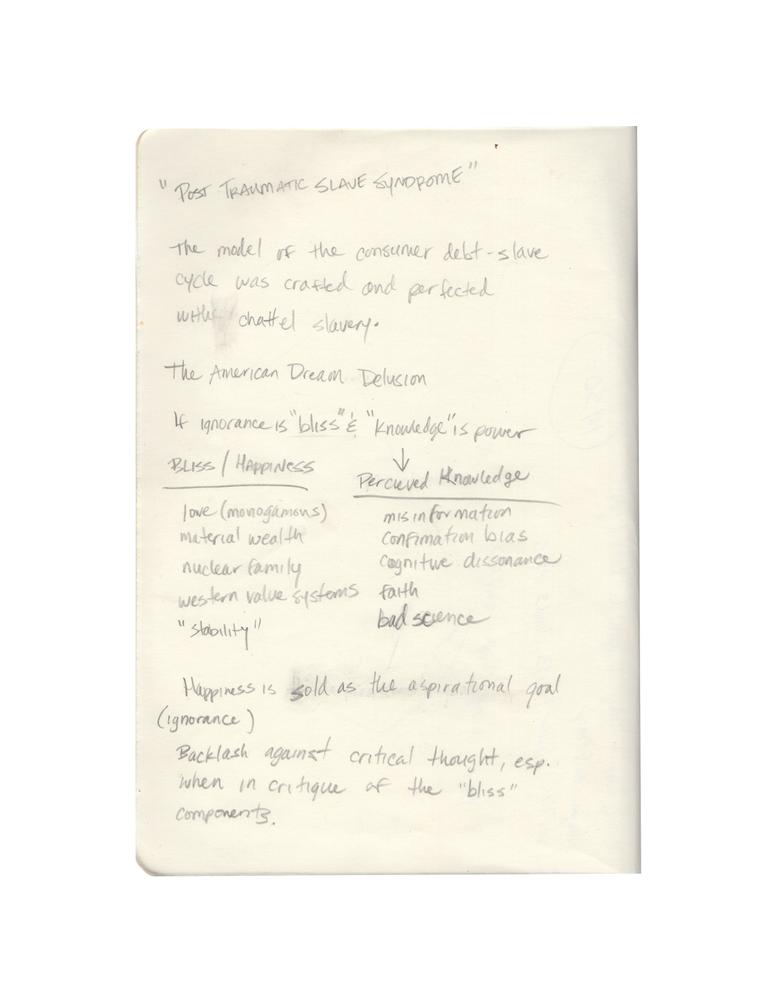 "POST TRAUMATIC SLAVE SYNDROME"
The model of the consumer debt-slave
cycle was crafted and perfected
with chattel slavery.
The American Dream Delusion
If ignorance is "bliss" & "Knowledge" is power
↓
BLISS / HAPPINESS
love (monogamous)
material wealth
nuclear family
western value systems
"stability"
Percieved Knowledge
misinformation
confirmation bias
cognitive dissonance
faith
bad science
Happiness is sold as the aspirational goal
(ignorance)
Backlash against critical thought, esp.
when in critique of the "bliss"
components.